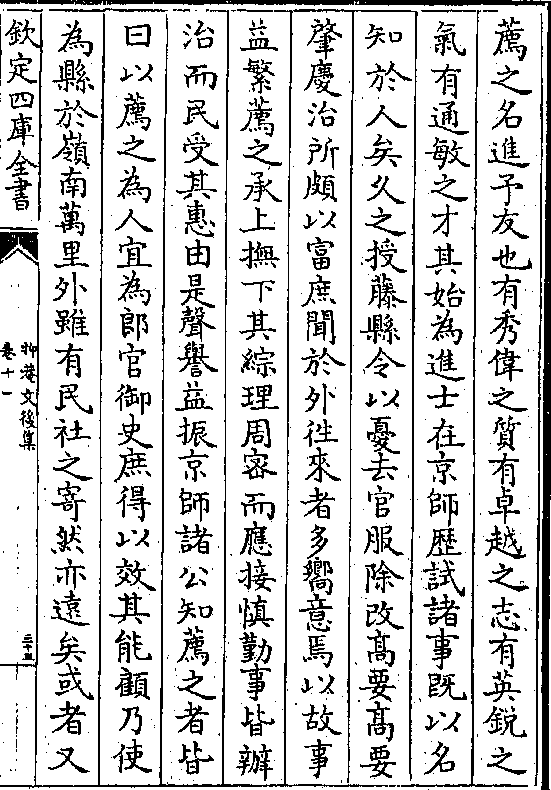 薦之名進予友也有秀偉之質有卓越之志有英鋭之
氣有通敏之才其始為進士在京師歴試諸事既以名
知於人矣久之授藤縣令以憂去官服除改髙要髙要
肇慶治所頗以富庶聞於外徃來者多嚮意焉以故事
益繁薦之承上撫下其綜理周宻而應接慎勤事皆辦
治而民受其惠由是聲譽益振京師諸公知薦之者皆
曰以薦之為人宜為郎官御史庶得以效其能顧乃使
為縣於嶺南萬里外雖有民社之寄然亦逺矣或者又
欽定四庫全書
抑菴文後集
卷十一